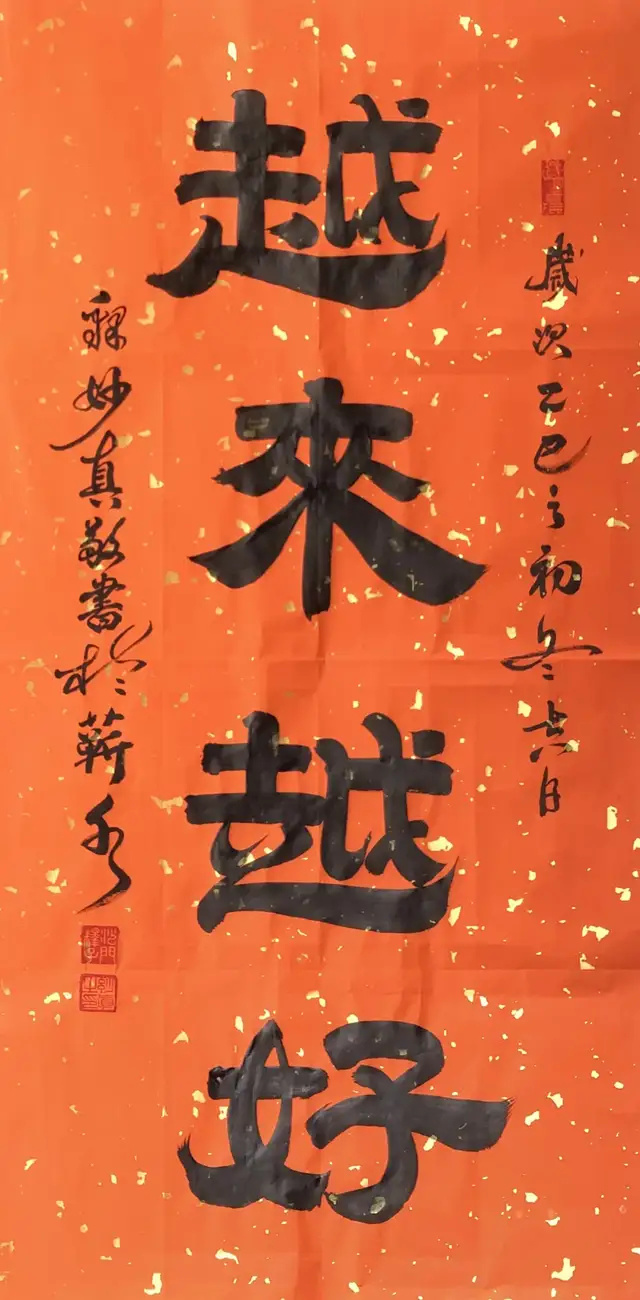 歲次乙巳之初冬吉日
越來越好
釋妙真敬書於蘄水